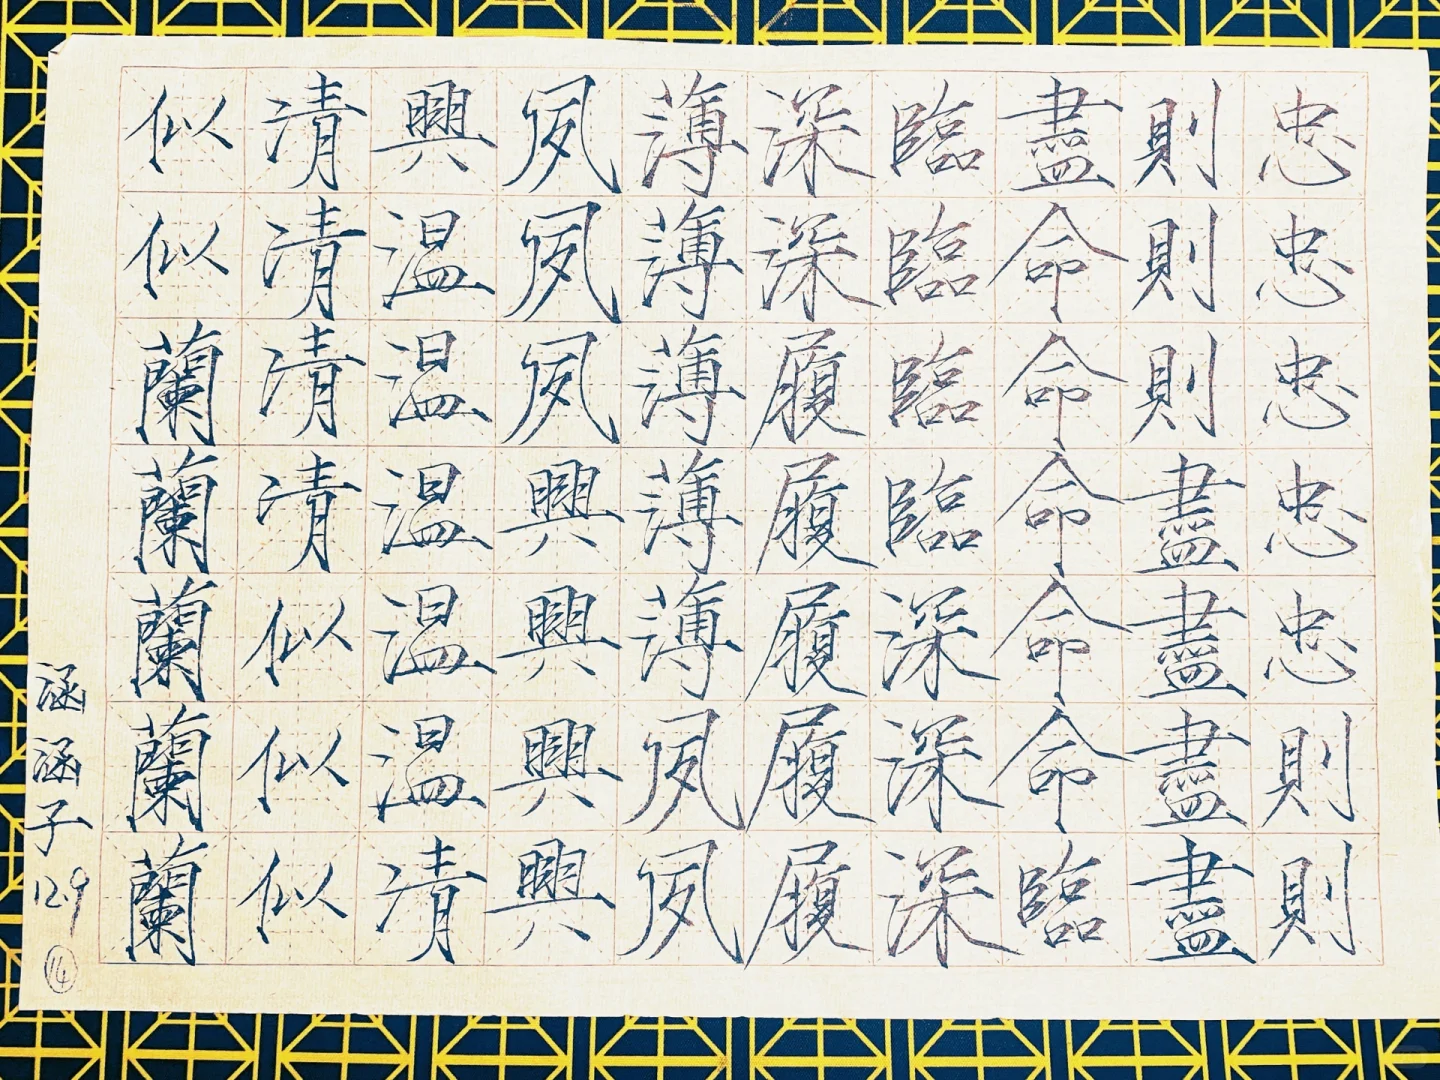 忠忠忠忠忠則則
則則則盡盡盡盡
盡命命命命命臨
臨臨臨臨深深深
深深履履履履履
薄薄薄薄薄夙夙
夙夙夙興興興興
興温温温温温清
清清清清似似似
似似蘭蘭蘭蘭蘭
涵涵子
12.9
⑭